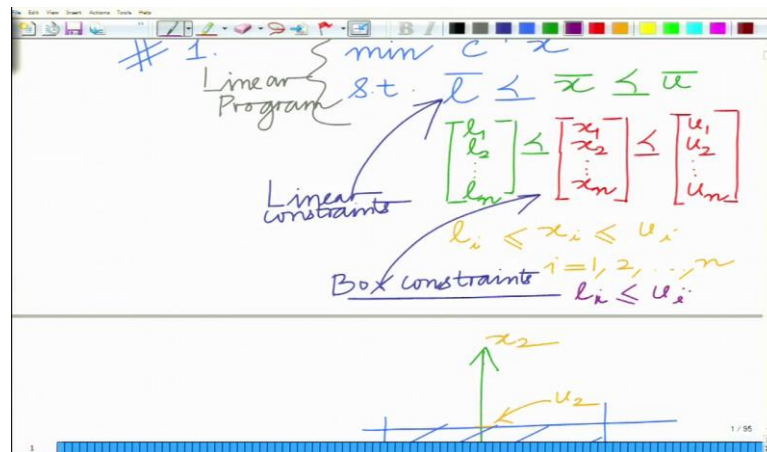 File Edit View Insert Actions Tools Help
# 1. min c̄ᵀ x̄
Linear Program s.t. l̄ ≤ x̄ ≤ ū
[l₁ l₂ ⋮ lₙ] ≤ [x₁ x₂ ⋮ xₙ] ≤ [u₁ u₂ ⋮ uₙ]
Linear
constraints
lᵢ ≤ xᵢ ≤ uᵢ
i = 1, 2, ..., n
Box constraints
lᵢ ≤ uᵢ
x₂
u₂
1 / 95
1